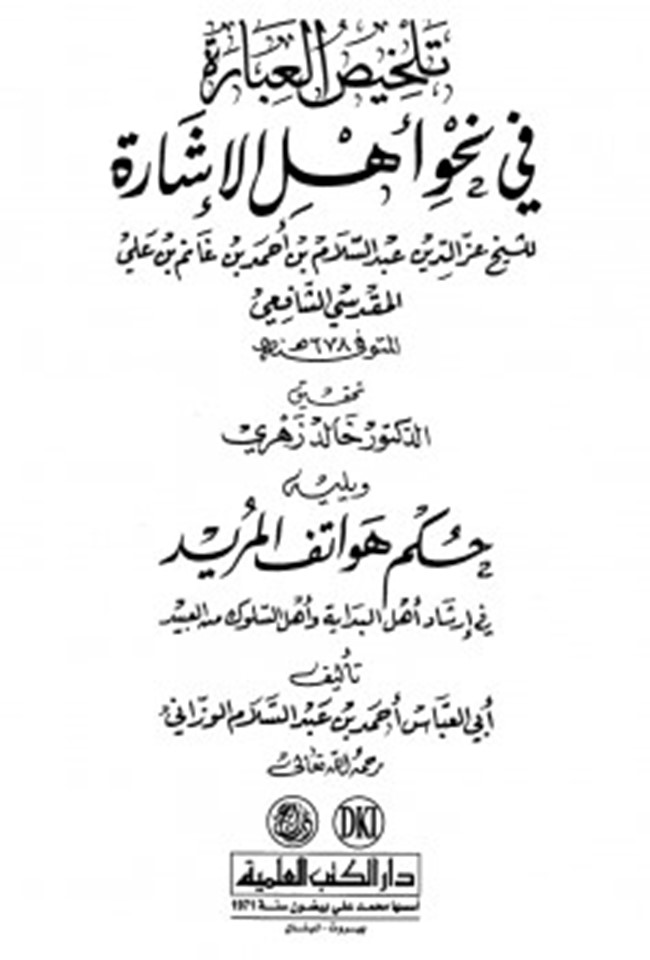 تَلخِيصُ العِبَارَة
في نَحْوِ أَهْلِ الإِشَارَة
للشيخ عز الدين عبد السلام بن أحمد بن غانم بن علي
المقدسي الشافعي
المتوفى ٦٧٨ هـ
تحقيق
الدكتور خالد زهري
ويليه
حُكْم هَوَاتف المُريد
في إرشاد أهل البداية وأهل السلوك من العبيد
تأليف
أبي العباس أحمد بن عبد السلام الوزاني
رحمه الله تعالى
DKI
دار الكتب العلمية
أسسها محمد علي بيضون سنة 1971
بيروت - لبنان